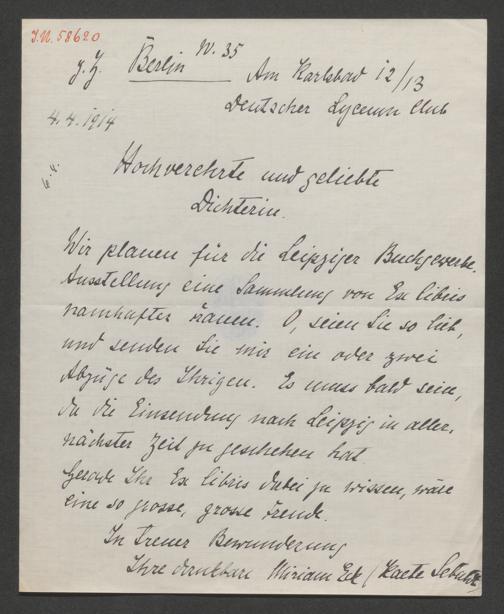 J.N. 58620
z. Z. Berlin W. 35
Am Karlsbad 12/13
Deutscher Lyceum Club
4.4.1914
Hochverehrte und geliebte
Dichterin.
Wir planen für die Leipziger Buchgewerbe-
Ausstellung eine Sammlung von Ex libris
namhafter Frauen. O, seien Sie so lieb,
und senden Sie mir ein oder zwei
Abzüge des Ihrigen. Es muss bald sein,
da die Einsendung nach Leipzig in aller-
nächster Zeit zu geschehen hat
Gerade Ihr Ex libris dabei zu wissen, wäre
eine so grosse, grosse Freude.
In treuer Bewunderung
Ihre dankbare Miriam Eck (Kaete